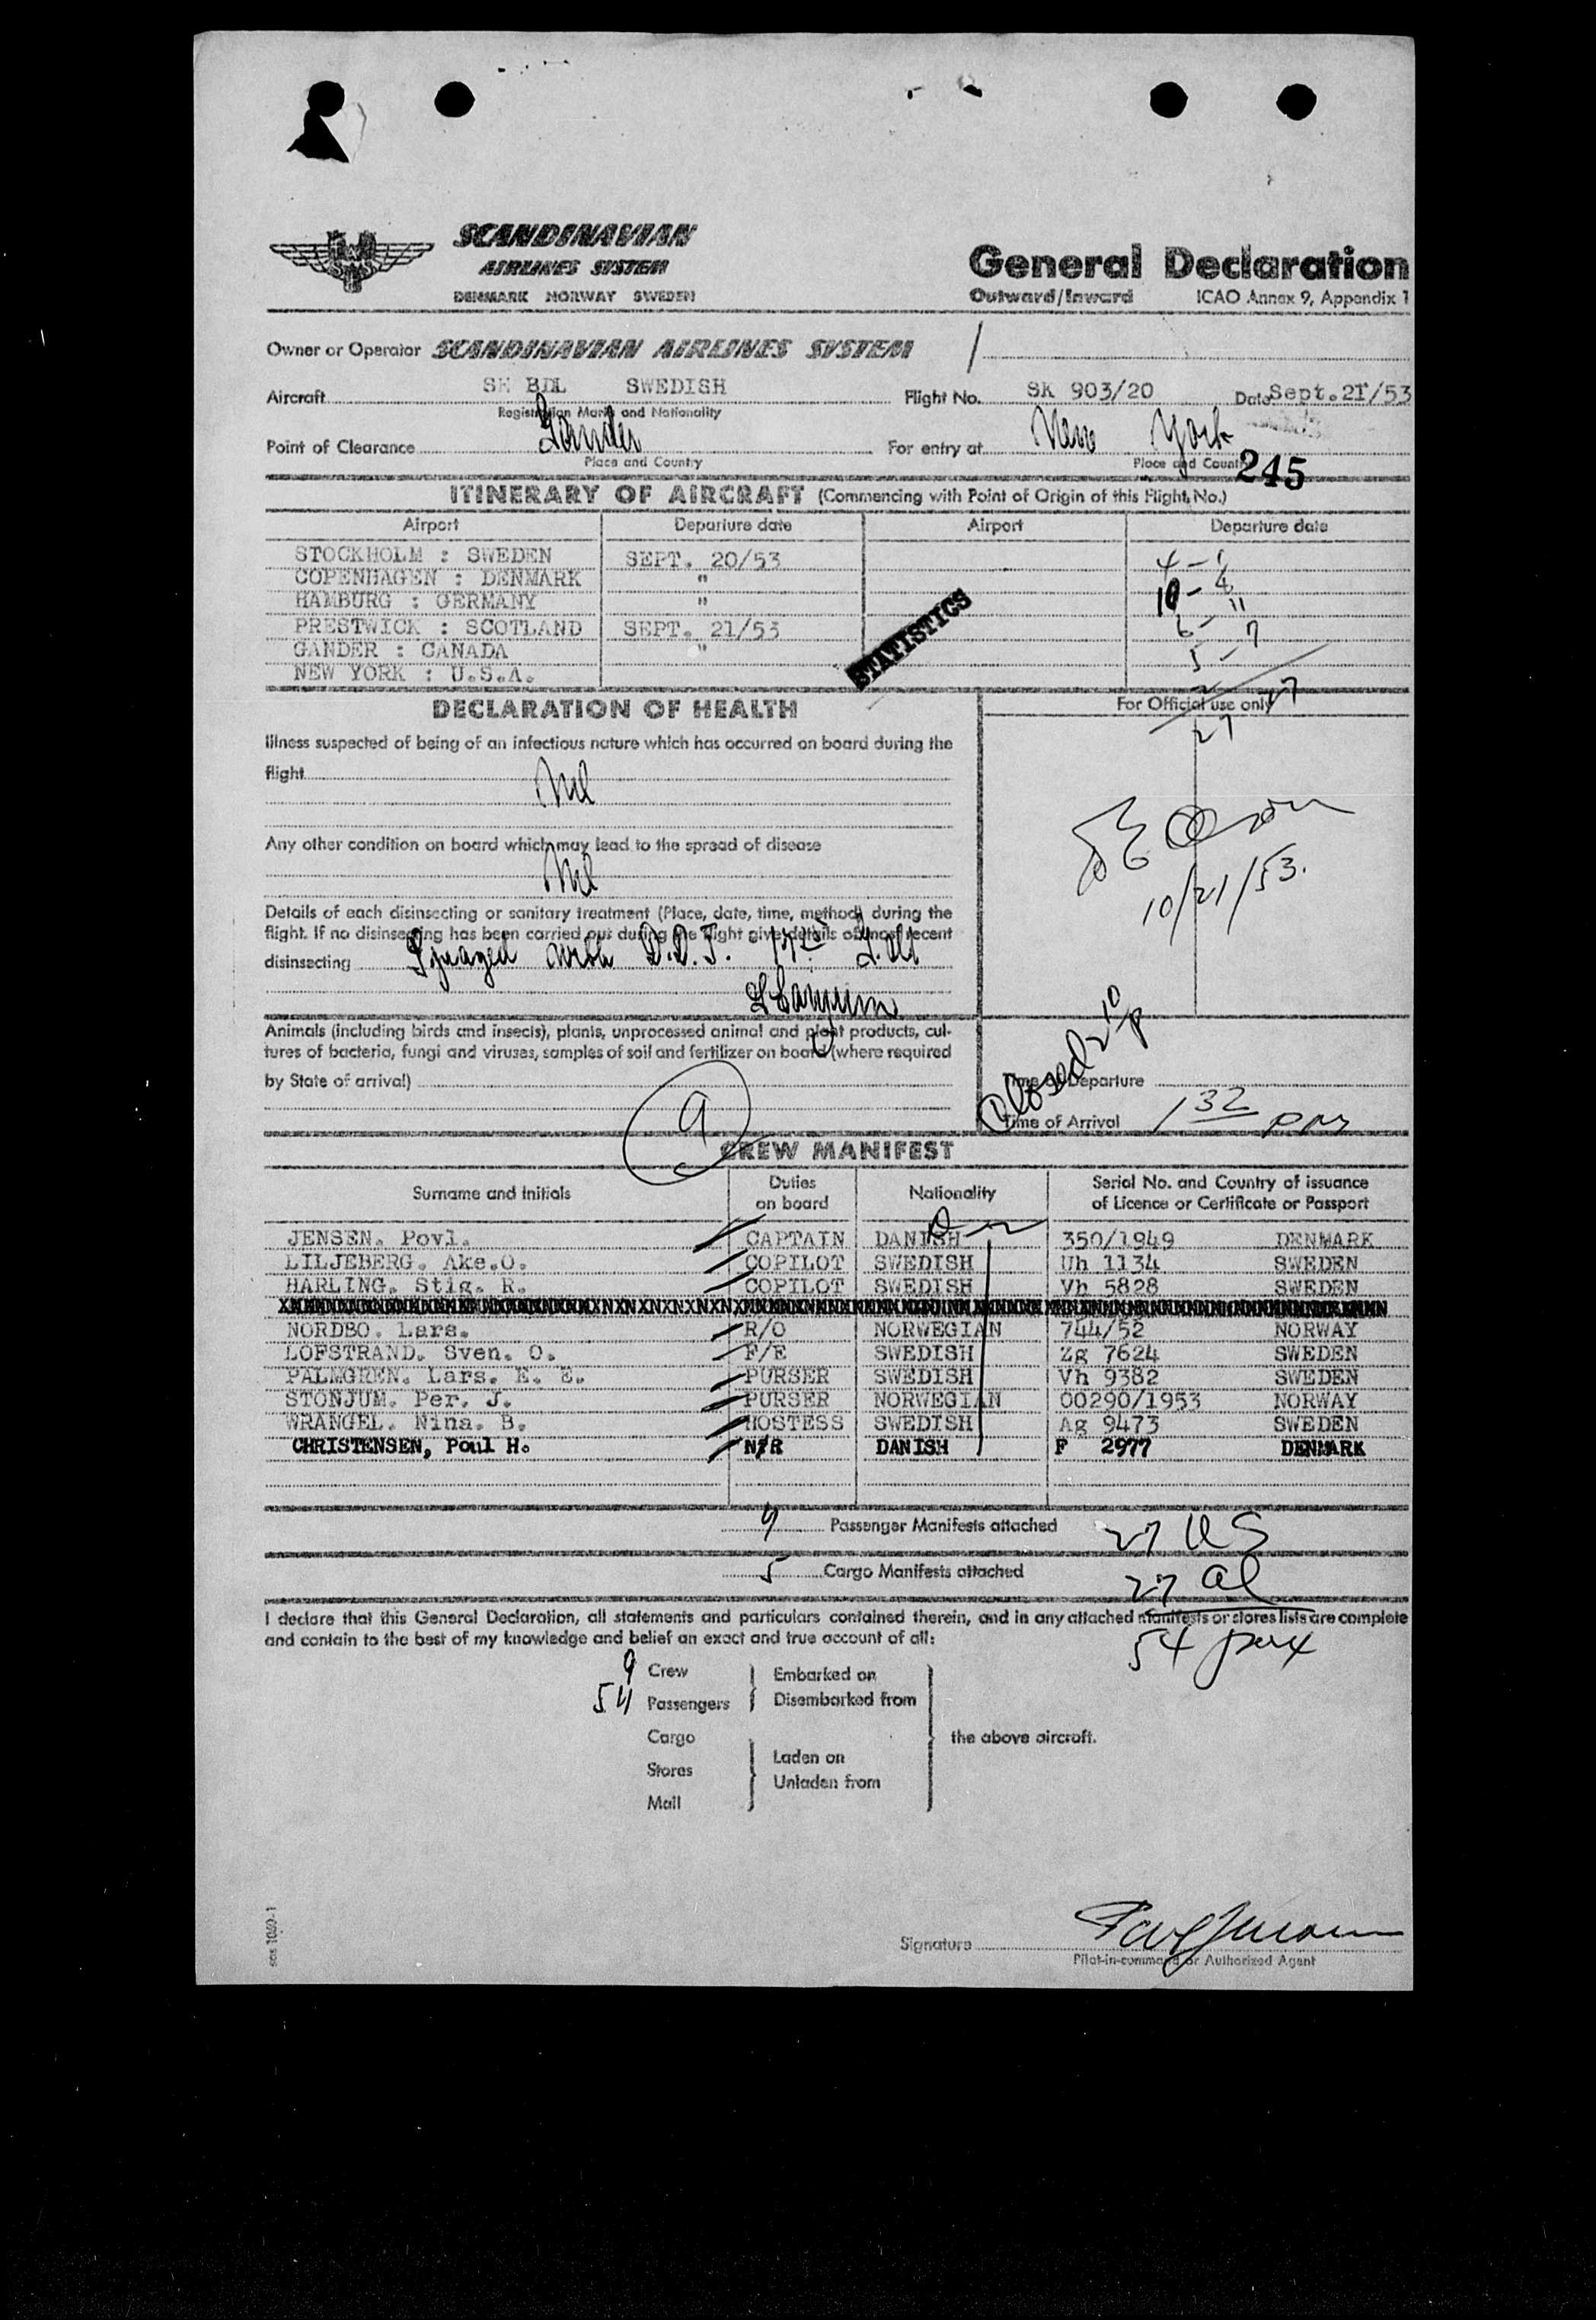 SCANDINAVIAN
AIRLINES SYSTEM
DENMARK NORWAY SWEDEN
General Declaration
Outward/Inward ICAO Annex 9, Appendix 1
Owner or Operator SCANDINAVIAN AIRLINES SYSTEM
Aircraft SE BDL SWEDISH Flight No. SK 903/20 Date Sept.21/53
Registration Marks and Nationality
Point of Clearance Gander For entry at New York
Place and Country Place and Country 245
ITINERARY OF AIRCRAFT (Commencing with Point of Origin of this Flight No.)
Airport Departure date Airport Departure date
STOCKHOLM : SWEDEN SEPT. 20/53 4 - 1
COPENHAGEN : DENMARK " 10 - 4
HAMBURG : GERMANY " 11
PRESTWICK : SCOTLAND SEPT. 21/53 6 - 7
GANDER : CANADA " 5 -
NEW YORK : U.S.A. 2
STATISTICS
DECLARATION OF HEALTH
For Official use only 27
27
Illness suspected of being of an infectious nature which has occurred on board during the
flight Nil
Any other condition on board which may lead to the spread of disease
Nil
10/21/53.
Details of each disinsecting or sanitary treatment (Place, date, time, method) during the
flight. If no disinsecting has been carried out during the flight give details of most recent
disinsecting Sprayed with D.D.T.
Animals (including birds and insects), plants, unprocessed animal and plant products, cul-
tures of bacteria, fungi and viruses, samples of soil and fertilizer on board (where required
by State of arrival)
Closed 2 10 p
Time of Departure
Time of Arrival 1 32 pm
9
CREW MANIFEST
Surname and Initials Duties on board Nationality Serial No. and Country of issuance of Licence or Certificate or Passport
JENSEN. Povl. CAPTAIN DANISH 350/1949 DENMARK
LILJEBERG. Ake.O. COPILOT SWEDISH Uh 1134 SWEDEN
HARLING. Stig. R. COPILOT SWEDISH Vh 5828 SWEDEN
NORDBO. Lars. R/O NORWEGIAN 744/52 NORWAY
LOFSTRAND. Sven. O. F/E SWEDISH Zg 7624 SWEDEN
PALMGREN. Lars. E. E. PURSER SWEDISH Vh 9382 SWEDEN
STONJUM. Per. J. PURSER NORWEGIAN 00290/1953 NORWAY
WRANGEL. Nina. B. HOSTESS SWEDISH Ag 9473 SWEDEN
CHRISTENSEN, Poul H. N/R DANISH F 2977 DENMARK
9 Passenger Manifests attached 27 US
5 Cargo Manifests attached 27 al
I declare that this General Declaration, all statements and particulars contained therein, and in any attached manifests or stores lists are complete
and contain to the best of my knowledge and belief an exact and true account of all:
54 pax
9 Crew Embarked on
54 Passengers Disembarked from
Cargo the above aircraft.
Stores Laden on
Unladen from
Mail
sas 1080-1
Signature
Pilot-in-command or Authorized Agent